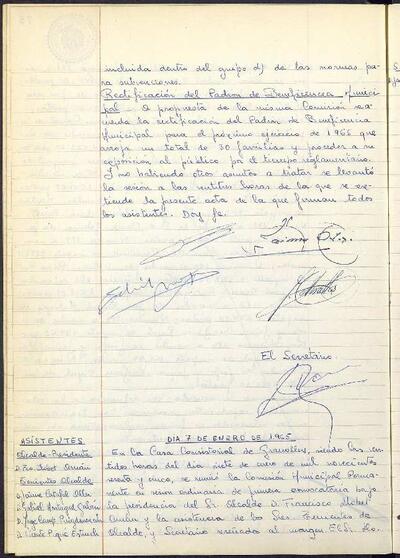 incluida dentro del grupo d) de las normas pa-
ra subvenciones.
Rectificación del Padron de Beneficencia Munici-
pal - A propuesta de la misma Comisión se a-
cuerda la rectificación del Padron de Beneficencia
Municipal para el próximo ejercicio de 1965 que
arroja un total de 30 familias y proceder a su
exposición al público por el tiempo reglamentario.
Y no habiendo otros asuntos a tratar se levantó
la sesión a las veintitres horas de la que se ex-
tiende la presente acta de la que firman todos
los asistentes. Doy fe.
El Secretario.
ASISTENTES
Alcalde-Presidente
Tenientes Alcalde
DIA 7 DE ENERO DE 1965
En la Casa Consistorial de Granollers, siendo las vein-
tidos horas del dia siete de enero de mil novecientos
sesenta y cinco, se reunió la Comisión Municipal Perma-
nente en sesión ordinaria de primera convocatoria bajo
la presidencia del Sr. Alcalde D. Francisco
y la asistencia de los Sres. Tenientes de
Alcalde, y Secretario reseñado al margen. El Sr.